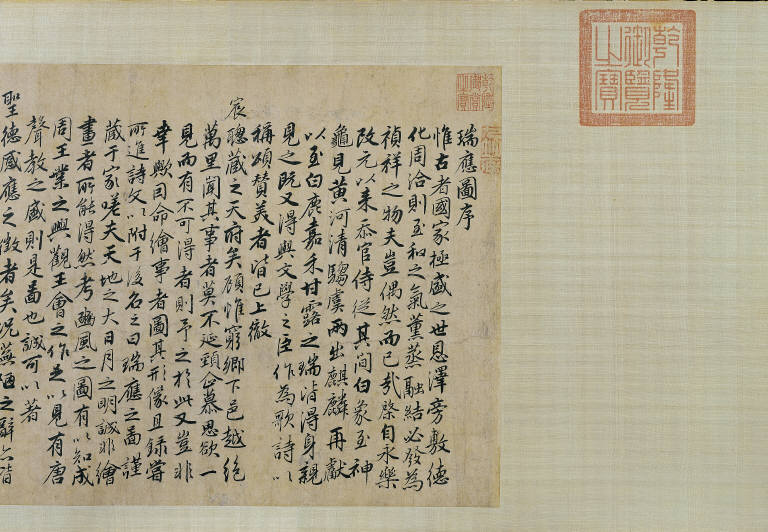 乾隆
御覽
之寶
瑞應圖序
惟古者國家極盛之世恩澤旁敷德
化周洽則至和之氣薰蒸融結必發為
禎祥之物夫豈偶然而已哉棨自永樂
改元以来忝官侍從其間白象至神
龜見黃河清騶虞兩出麒麟再獻
以至白鹿嘉禾甘露之瑞皆得身親
見之既又得與文學之臣作為歌詩以
稱頌贊美者皆已上徹
宸聰藏之天府矣顧惟窮鄉下邑越絶
萬里聞其事者莫不延頸企慕思欲一
見而有不可得者則予之於此又豈非
幸歟因命繪事者圖其形像且錄嘗
所進詩文以附于後名之曰瑞應之圖謹
藏于家嗟夫天地之大日月之明誠非繪
畫者所能得然考豳風之圖有以知成
周王業之興觀王會之作足以見有唐
聲教之盛則是圖也誠可以著
聖德感應之徵者矣况蕪陋之辭亦皆